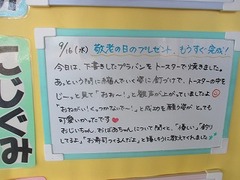 9/16(水) 敬老の日のプレゼント、もうすぐ完成!
今日は、下書きしたプラバンをトースターで焼きました。
あっという間に縮んでいく姿に釘づけで、トースターの中を
じーっと見て"おぉ〜!"と歓声が上がっていましたよ☺
"おねがい!くっつかないで〜"と成功を願う姿がとっても
可愛いかったです♡
おじいちゃん、おばあちゃんについて聞くと、"優しい""釣り
してるよ""お寿司つくるんだよ"と嬉しそうに教えてくれました
じつぐみ